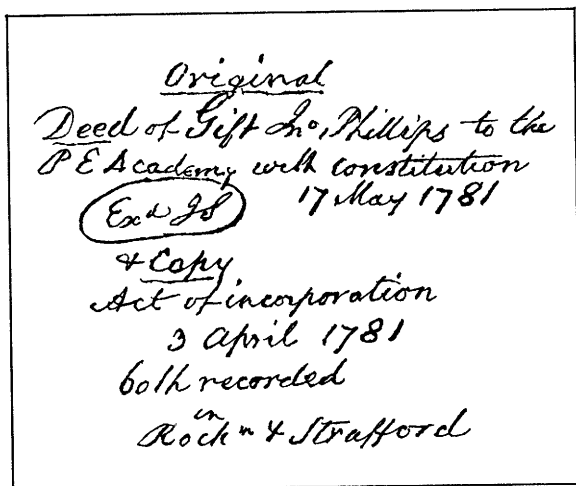 Original
Deed of Gift Jnº. Phillips to the
P E Academy with constitution
Exd JS 17 May 1781
& Copy
Act of incorporation
3 April 1781
both recorded
in
Rockm & Strafford